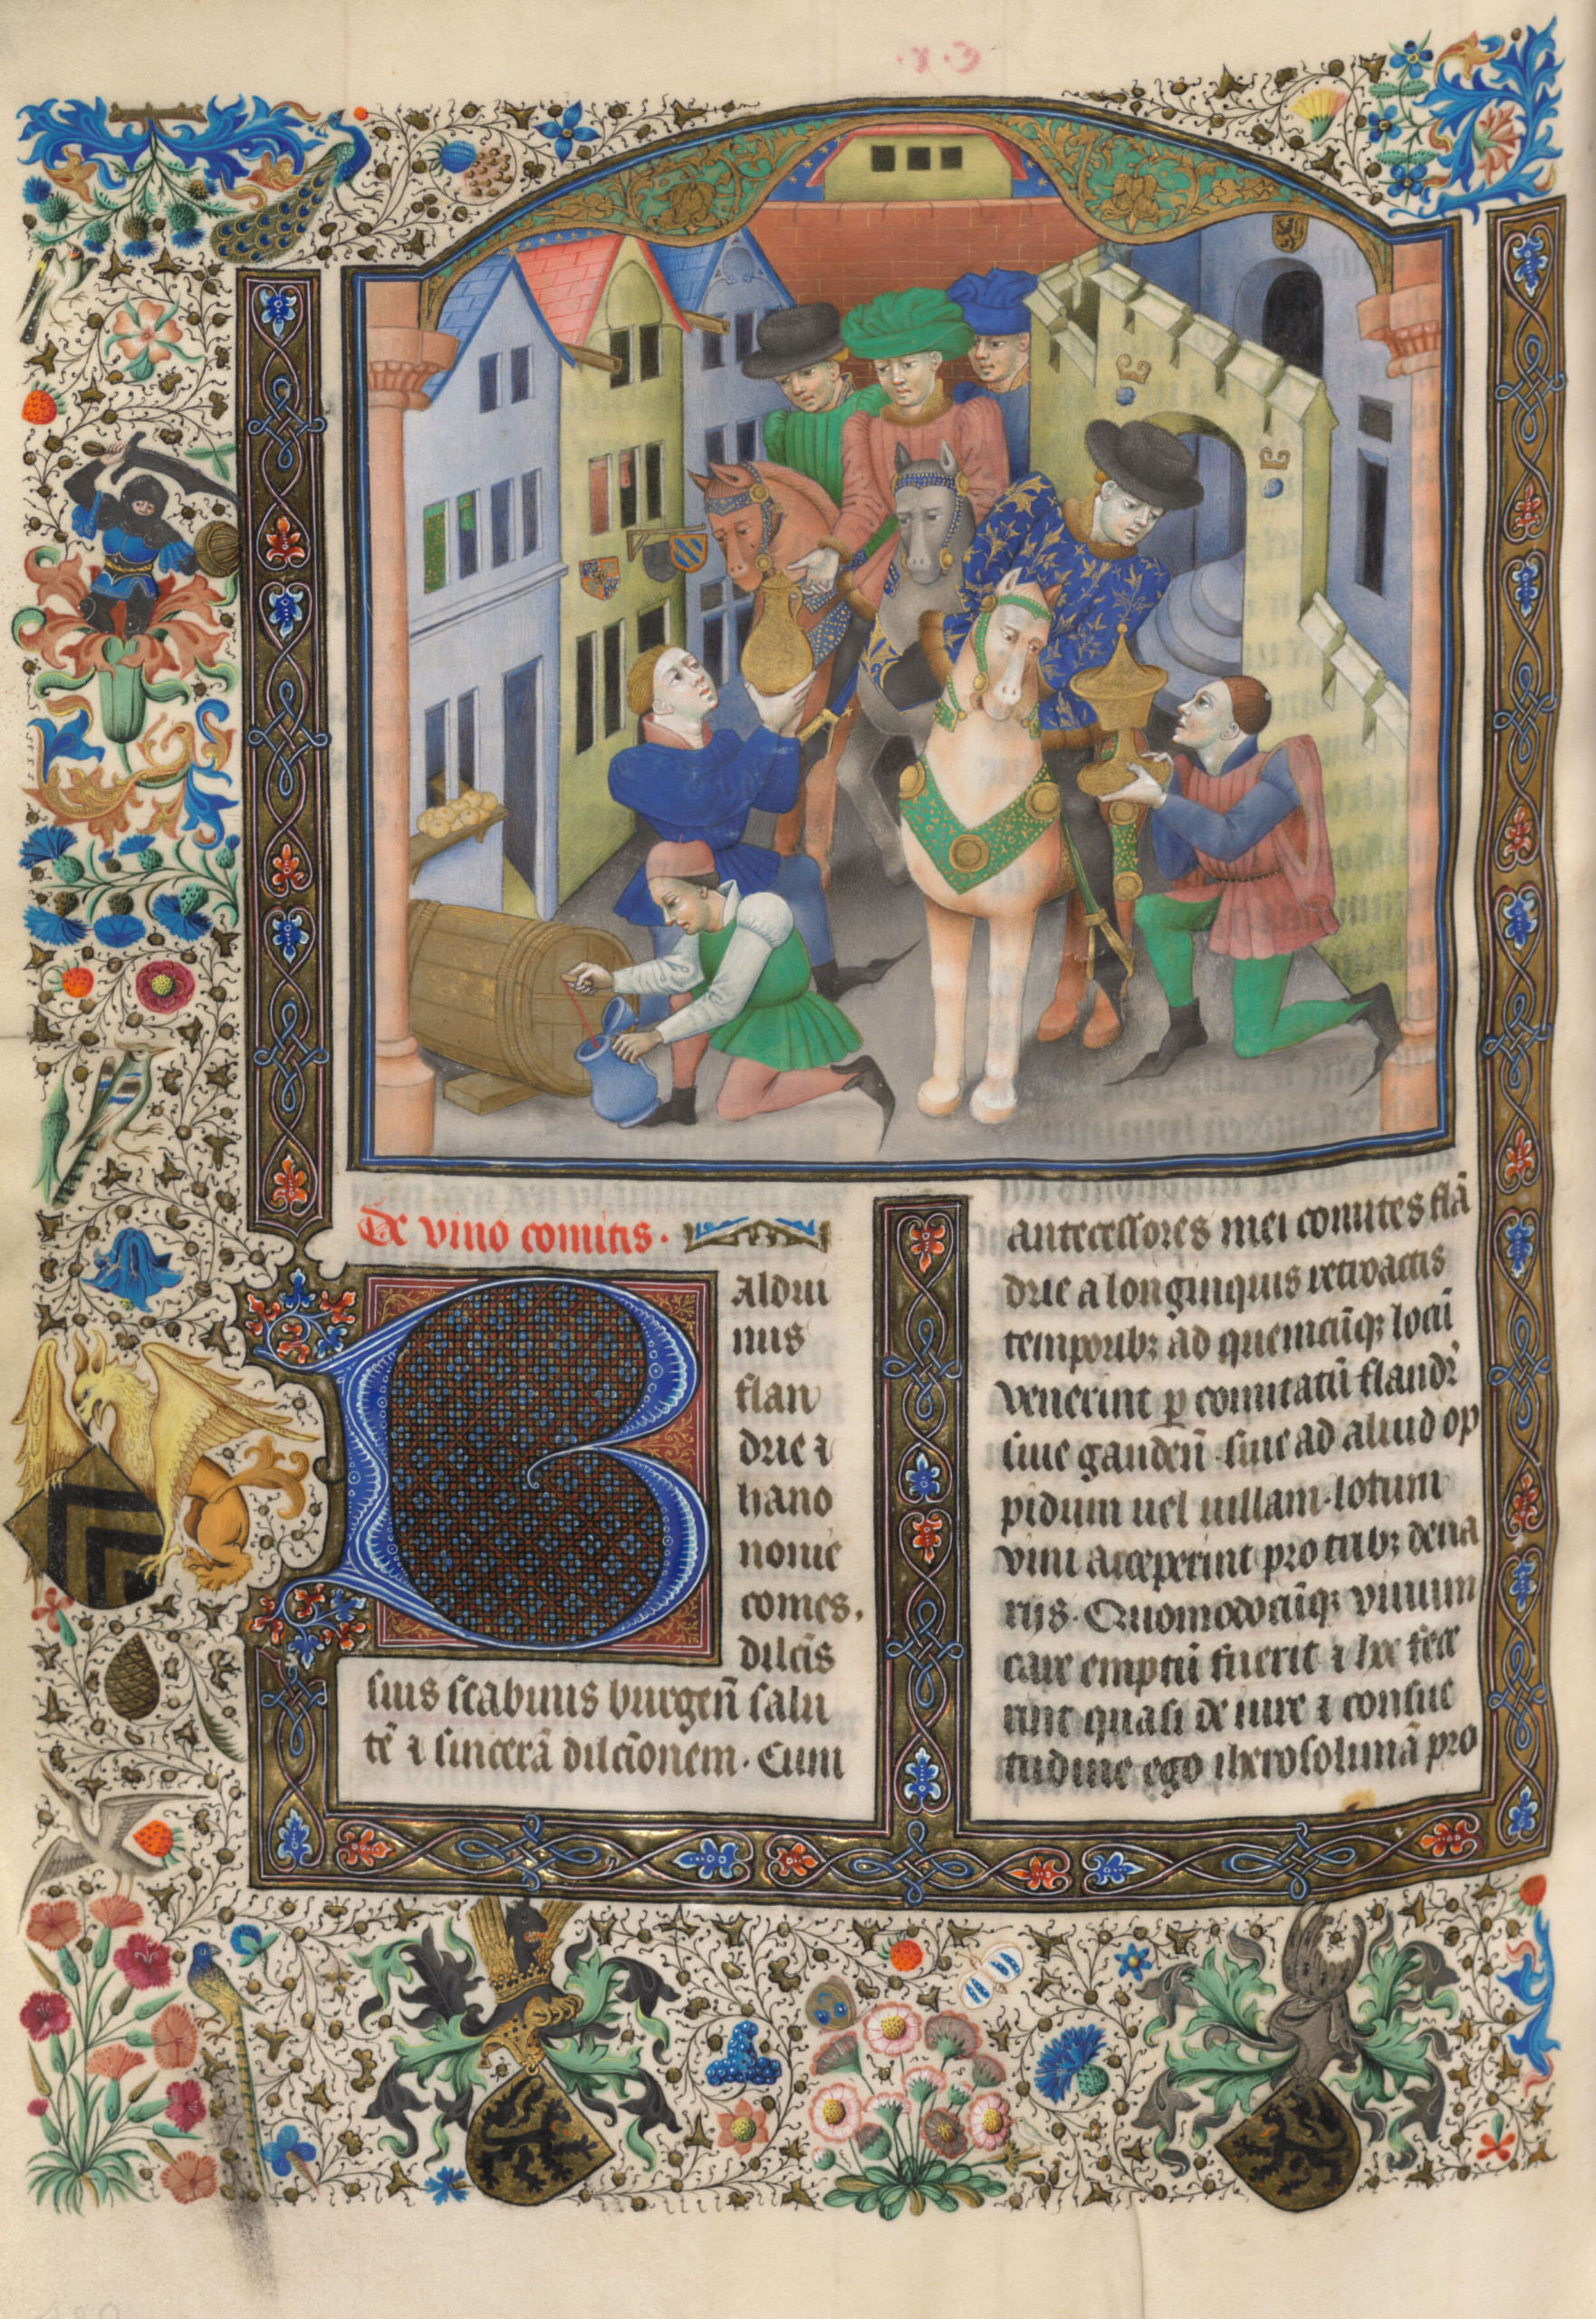 De vino comitis.
Baldui
nus
flan
drie ⁊
hano
nonie
comes.
dilc̄is
suis scabinis burgen̄ salu
tē ⁊ sincerā dilc̄ionem. Cum
antecessores mei comites flā
drie a longinquis retroactis
temporibꝫ ad quemcūqꝫ locū
venerint ꝑ comitatū flandr̄
siue ganden̄ siue ad aliud op
pidum uel uillam. lotum
vini acceperint pro tribꝫ dena
riis. Quomodocūqꝫ vinum
care emptū fuerit ⁊ hec fece
rint quasi de iure ⁊ consue
tudine ego iherosolimā pro